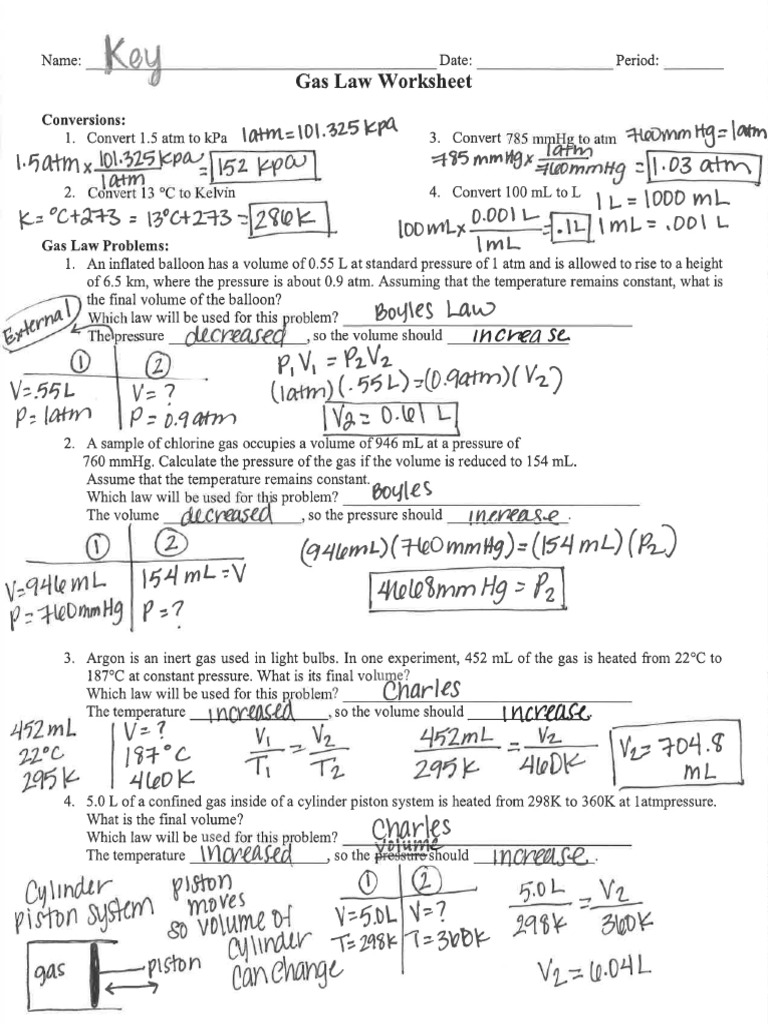 Name: Key Date: Period:
Gas Law Worksheet
Conversions:
1. Convert 1.5 atm to kPa 1atm = 101.325 kPa
1.5atm x 101.325 kPa / 1atm = 152 kPa
2. Convert 13 °C to Kelvin
K = °C+273 = 13°C+273 = 286K
3. Convert 785 mmHg to atm 760mmHg = 1atm
785 mmHg x 1atm / 760mmHg = 1.03 atm
4. Convert 100 mL to L 1L = 1000 mL
100mL x 0.001L / 1mL = .1L 1mL = .001L
Gas Law Problems:
1. An inflated balloon has a volume of 0.55 L at standard pressure of 1 atm and is allowed to rise to a height
of 6.5 km, where the pressure is about 0.9 atm. Assuming that the temperature remains constant, what is
the final volume of the balloon?
Which law will be used for this problem? Boyles Law
External
The pressure decreased, so the volume should increase
1 2
V=.55L V=?
P=1atm P=0.9atm
P1V1 = P2V2
(1atm)(.55L)=(0.9atm)(V2)
V2= 0.61 L
2. A sample of chlorine gas occupies a volume of 946 mL at a pressure of
760 mmHg. Calculate the pressure of the gas if the volume is reduced to 154 mL.
Assume that the temperature remains constant.
Which law will be used for this problem? Boyles
The volume decreased, so the pressure should increase.
1 2
V=946mL 154mL=V
P=760mmHg P=?
(946mL)(760mmHg)=(154mL)(P2)
4668mmHg = P2
3. Argon is an inert gas used in light bulbs. In one experiment, 452 mL of the gas is heated from 22°C to
187°C at constant pressure. What is its final volume?
Which law will be used for this problem? Charles
The temperature increased, so the volume should increase.
452mL V=?
22°C 187°C
295K 460K
V1/T1 = V2/T2
452mL/295K = V2/460K
V2=704.8
mL
4. 5.0 L of a confined gas inside of a cylinder piston system is heated from 298K to 360K at 1atmpressure.
What is the final volume?
Which law will be used for this problem? Charles
volume
The temperature increased, so the pressure should increase.
Cylinder
piston system
piston
moves
so volume of
cylinder
can change
gas
piston
1 2
V=5.0L V=?
T=298K T=360K
5.0L/298K = V2/360K
V2=6.04L